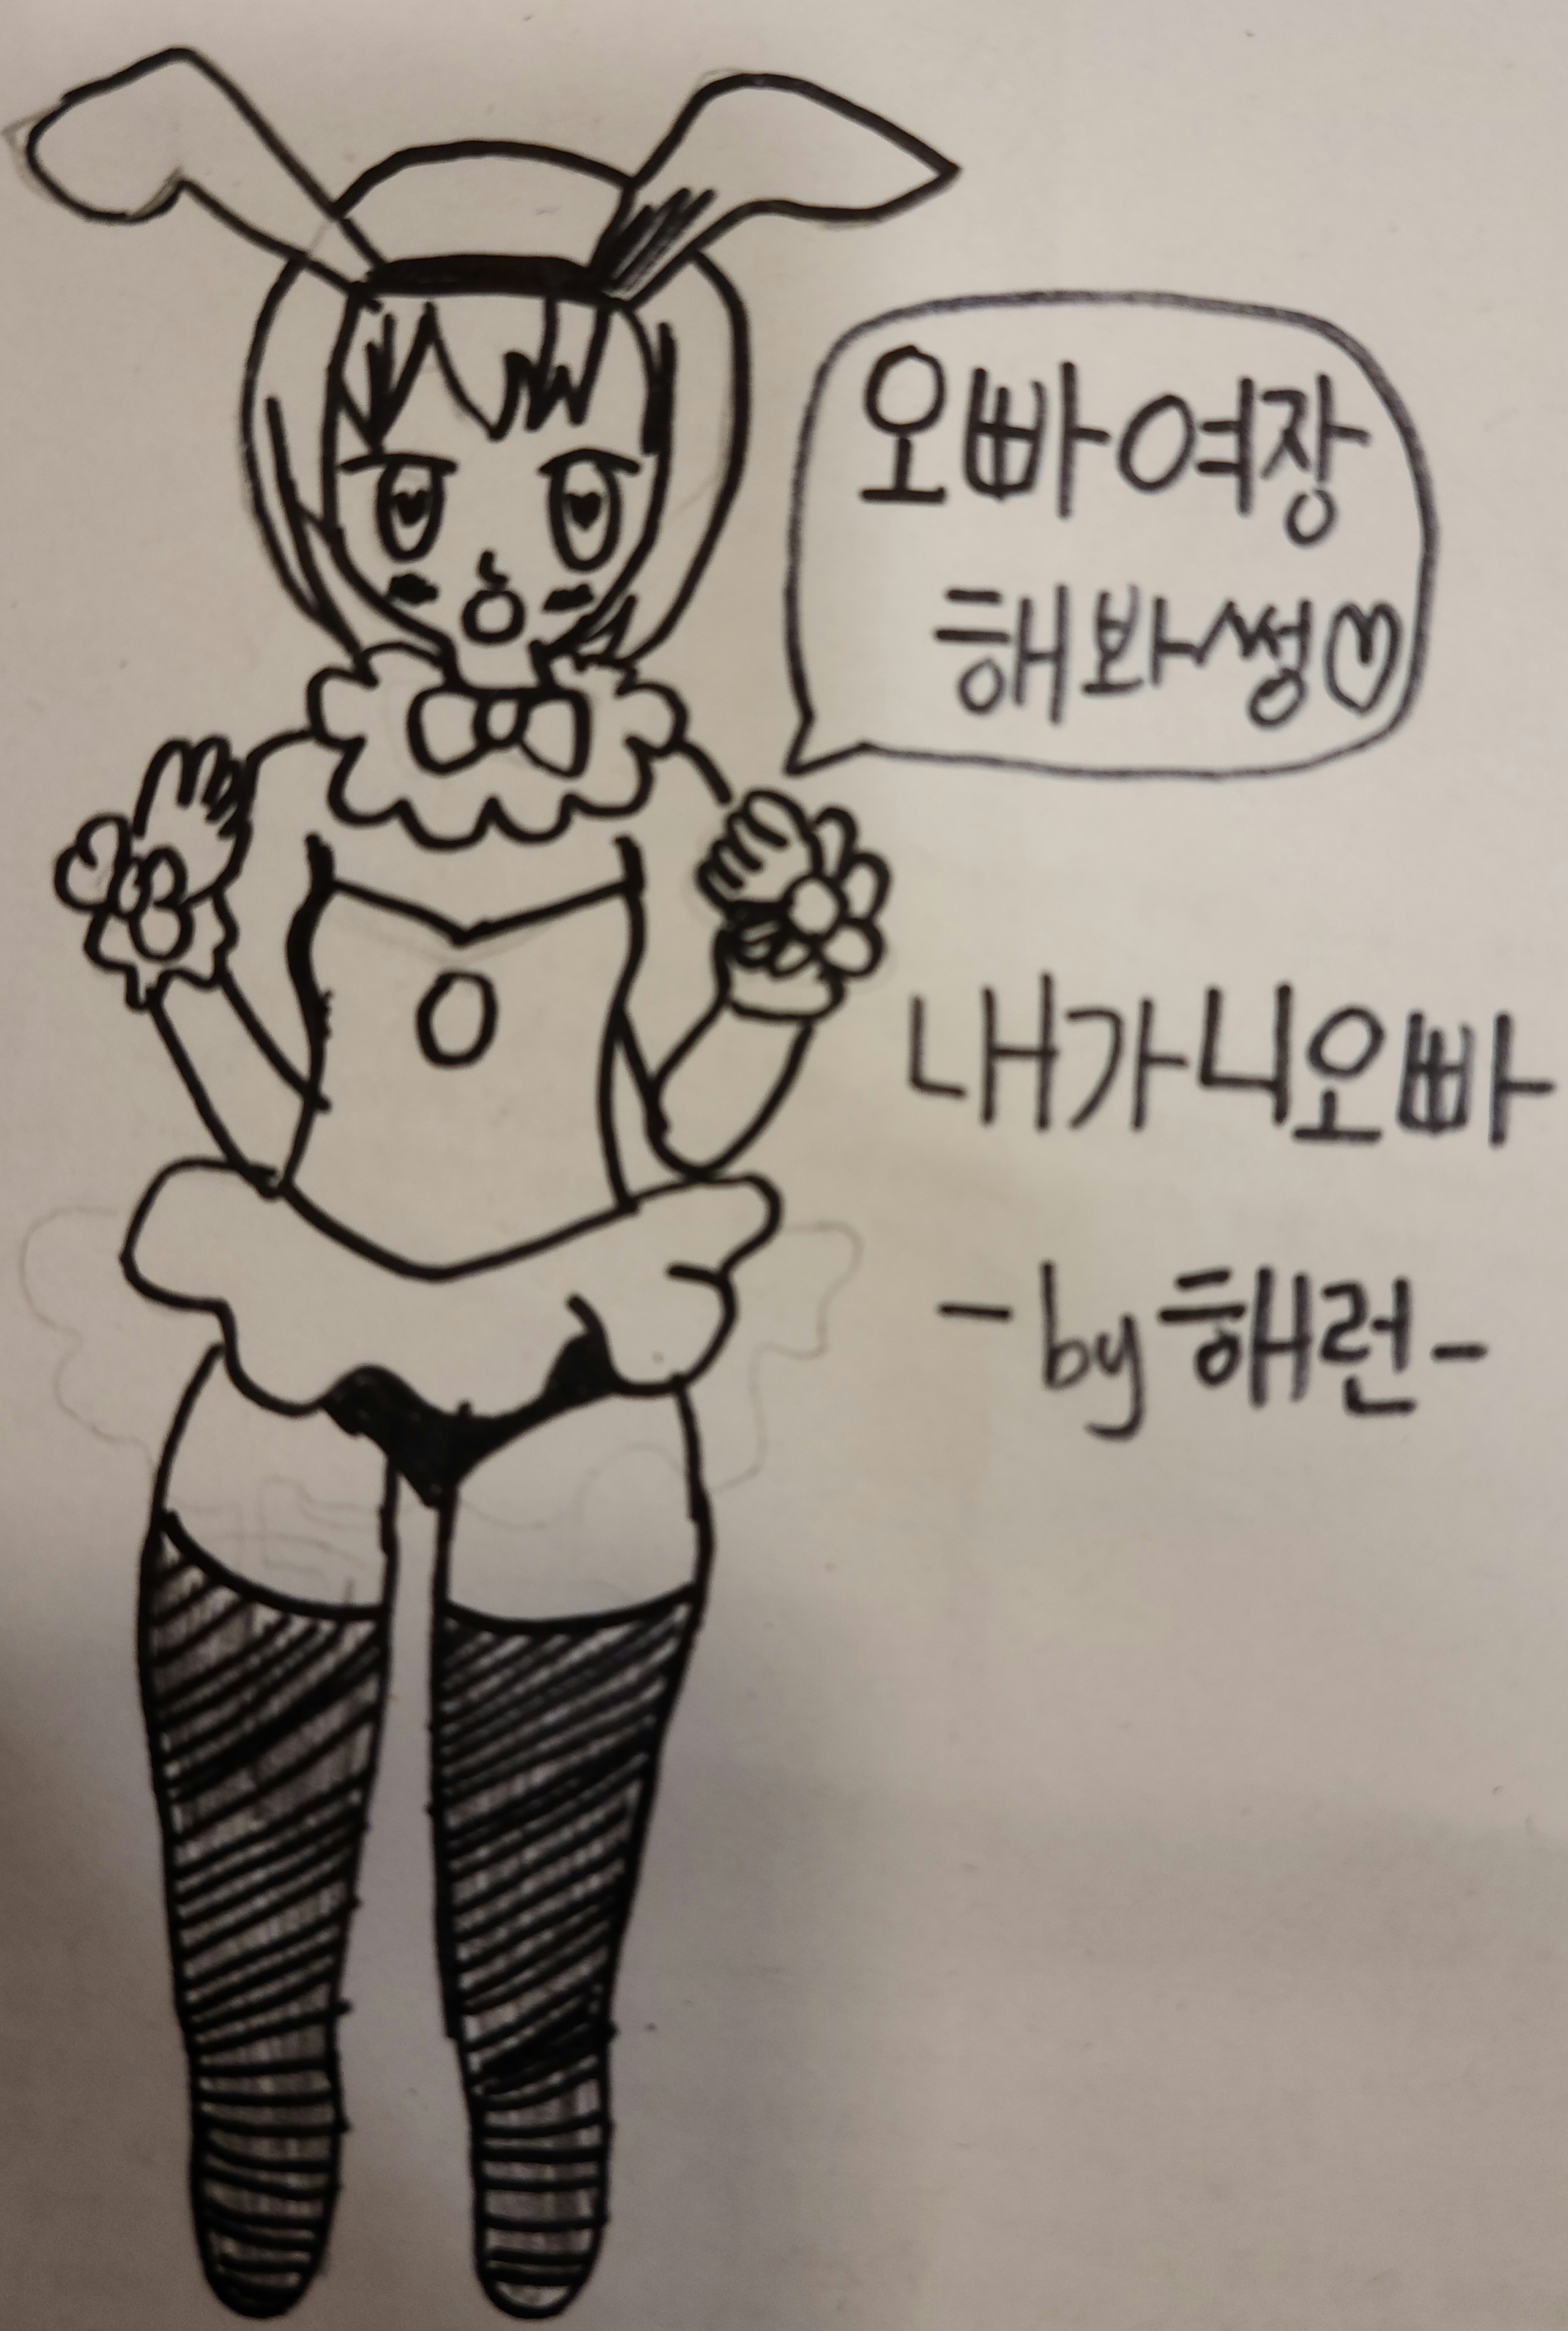 오빠 여장
해봐썽♡
내가 니오빠
-by 해런-